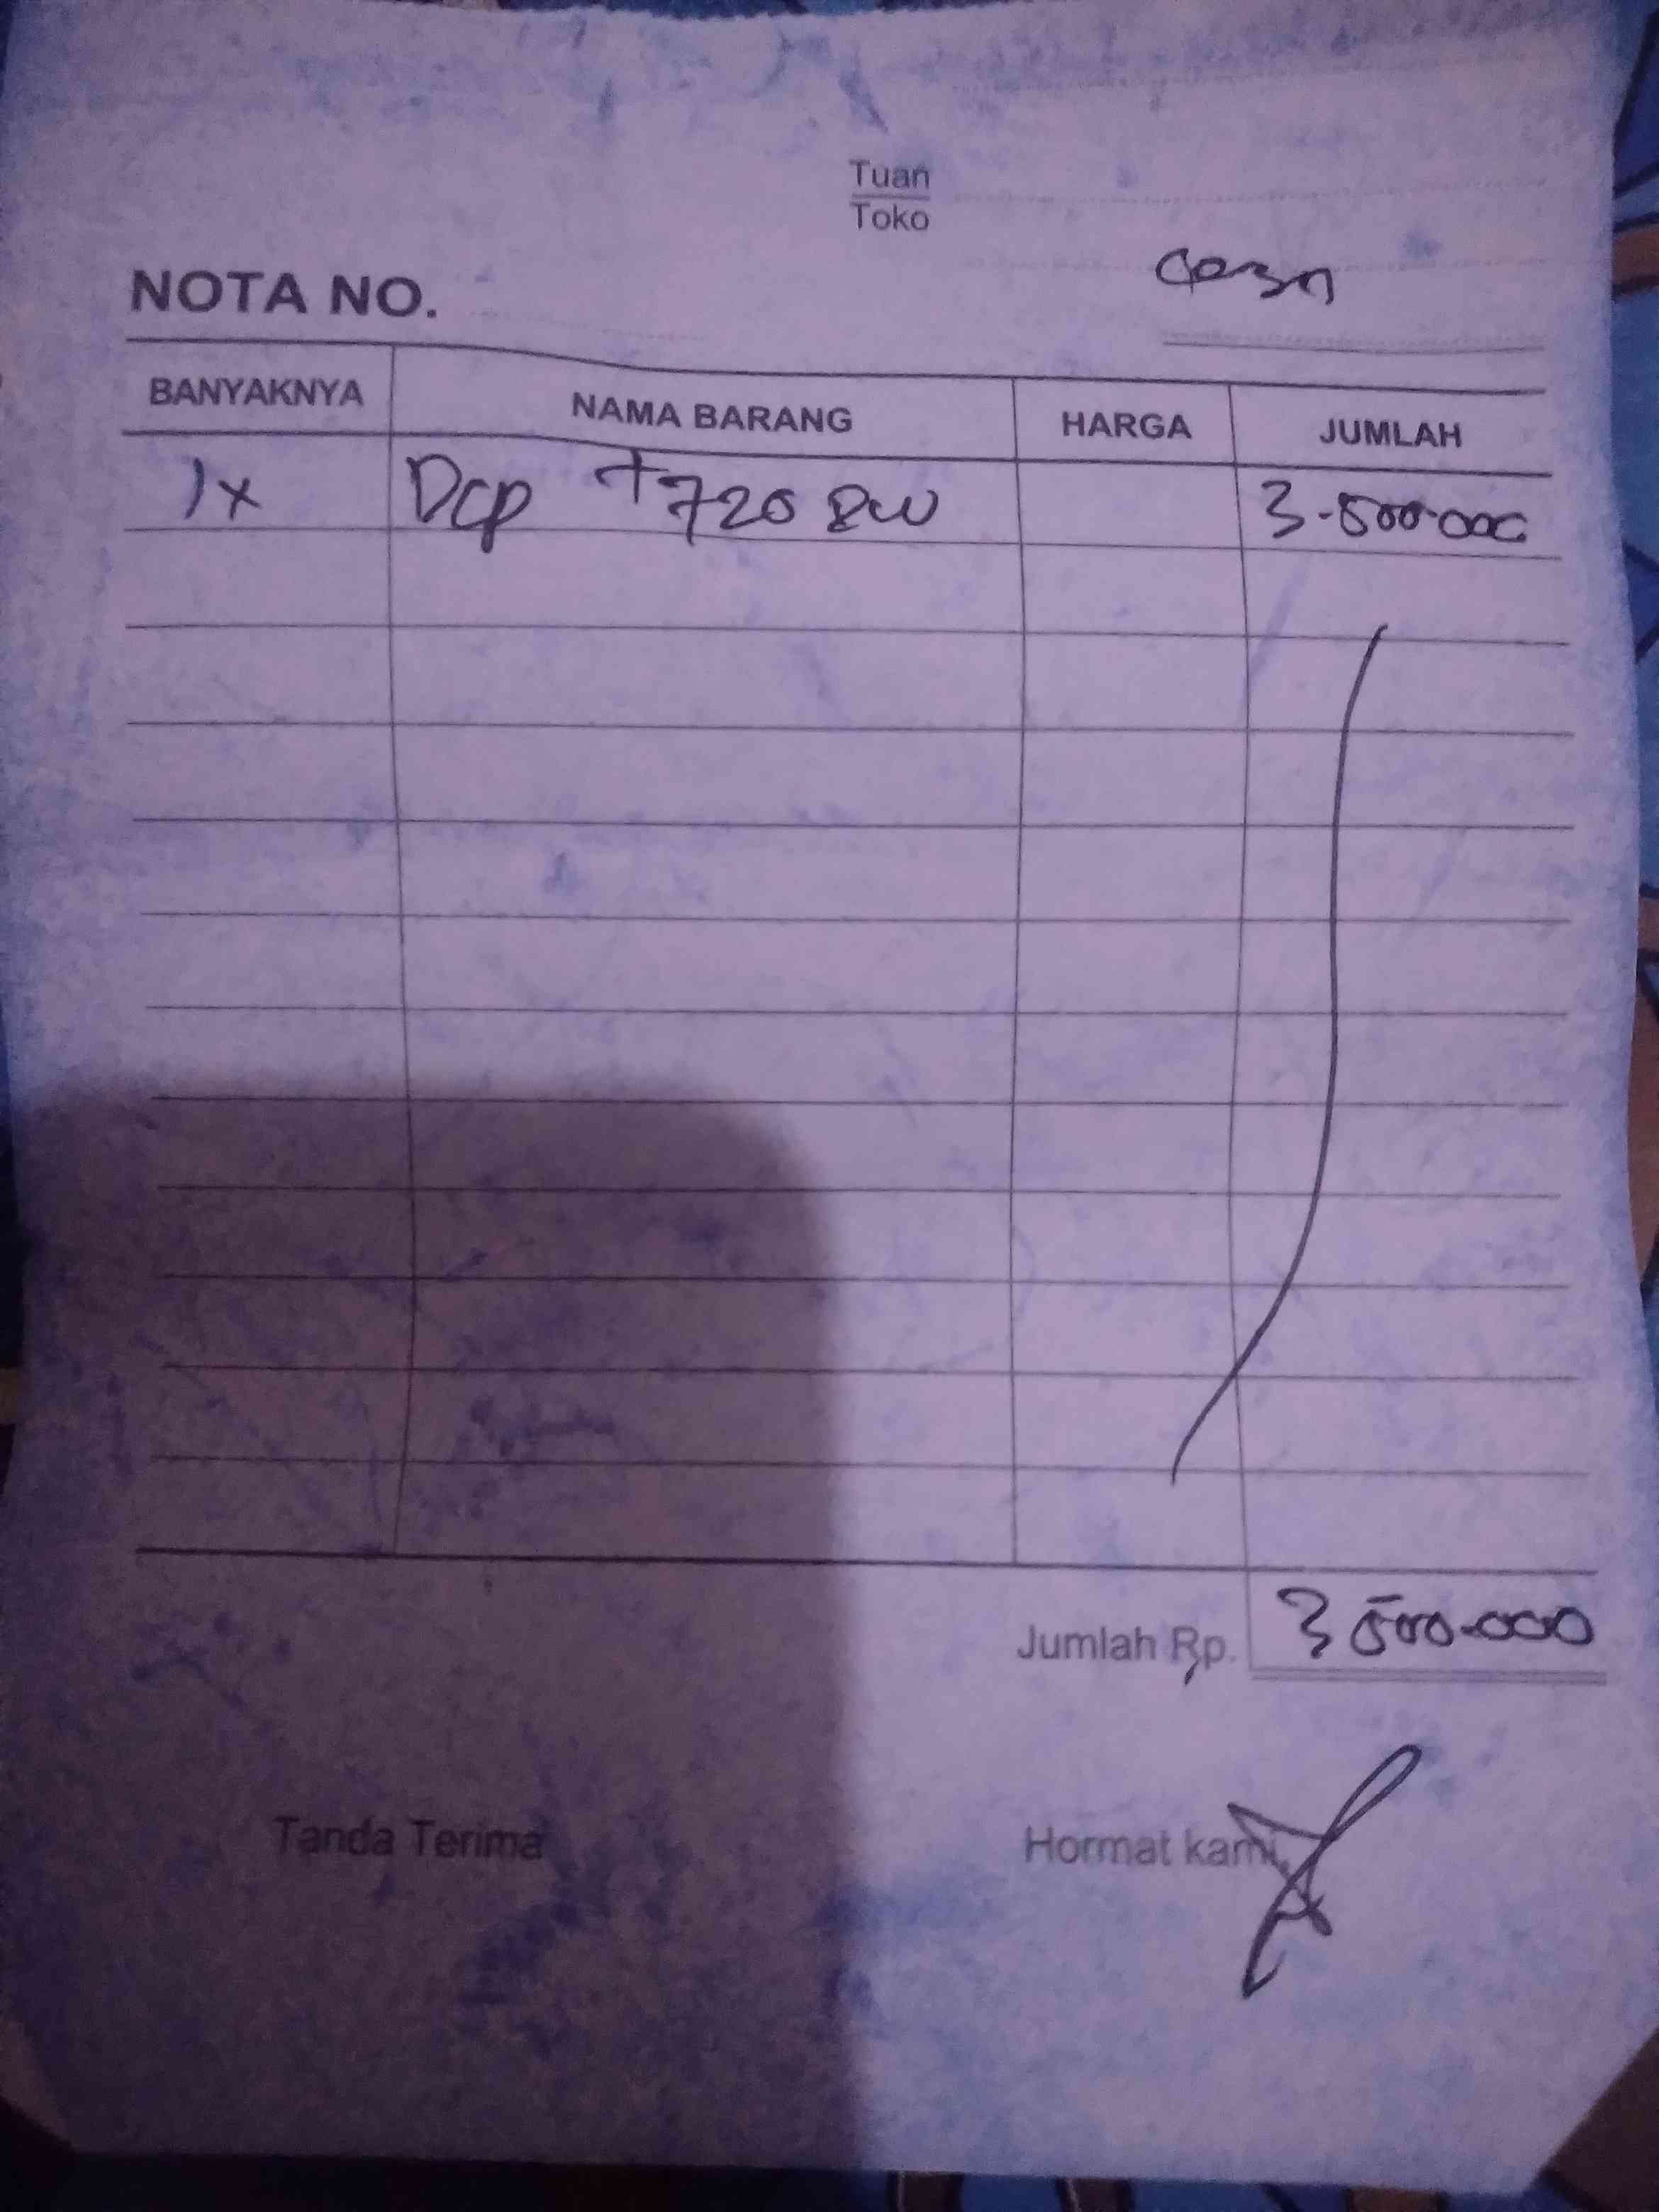 Tuan
Toko
NOTA NO.
BANYAKNYA NAMA BARANG HARGA JUMLAH
1x Dcp T720 DW 3.500.000
Jumlah Rp. 3 500.000
Tanda Terima Hormat kami,